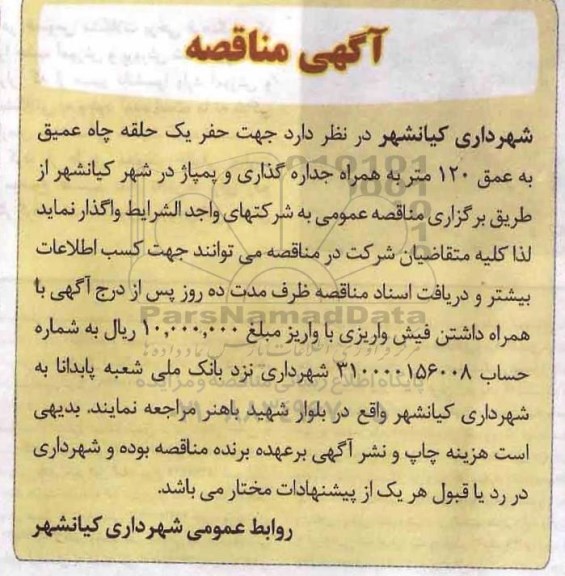 آگهی مناقصه
شهرداری کیانشهر در نظر دارد جهت حفر یک حلقه چاه عمیق
به عمق ۱۲۰ متر به همراه جداره گذاری و پمپاژ در شهر کیانشهر از
طریق برگزاری مناقصه عمومی به شرکتهای واجد الشرایط واگذار نماید
لذا کلیه متقاضیان شرکت در مناقصه می توانند جهت کسب اطلاعات
بیشتر و دریافت اسناد مناقصه ظرف مدت ده روز پس از درج آگهی با
ParsNamadData
همراه داشتن فیش واریزی با واریز مبلغ ۱۰,۰۰۰,۰۰۰ ریال به شماره
حساب ۳۱۰۰۰۰۱۵۶۰۰۸ شهرداری نزد بانک ملی شعبه پابدانا به
شهرداری کیانشهر واقع در بلوار شهید باهنر مراجعه نمایند. بدیهی
است هزینه چاپ و نشر آگهی برعهده برنده مناقصه بوده و شهرداری
در رد یا قبول هر یک از پیشنهادات مختار می باشد.
روابط عمومی شهرداری کیانشهر